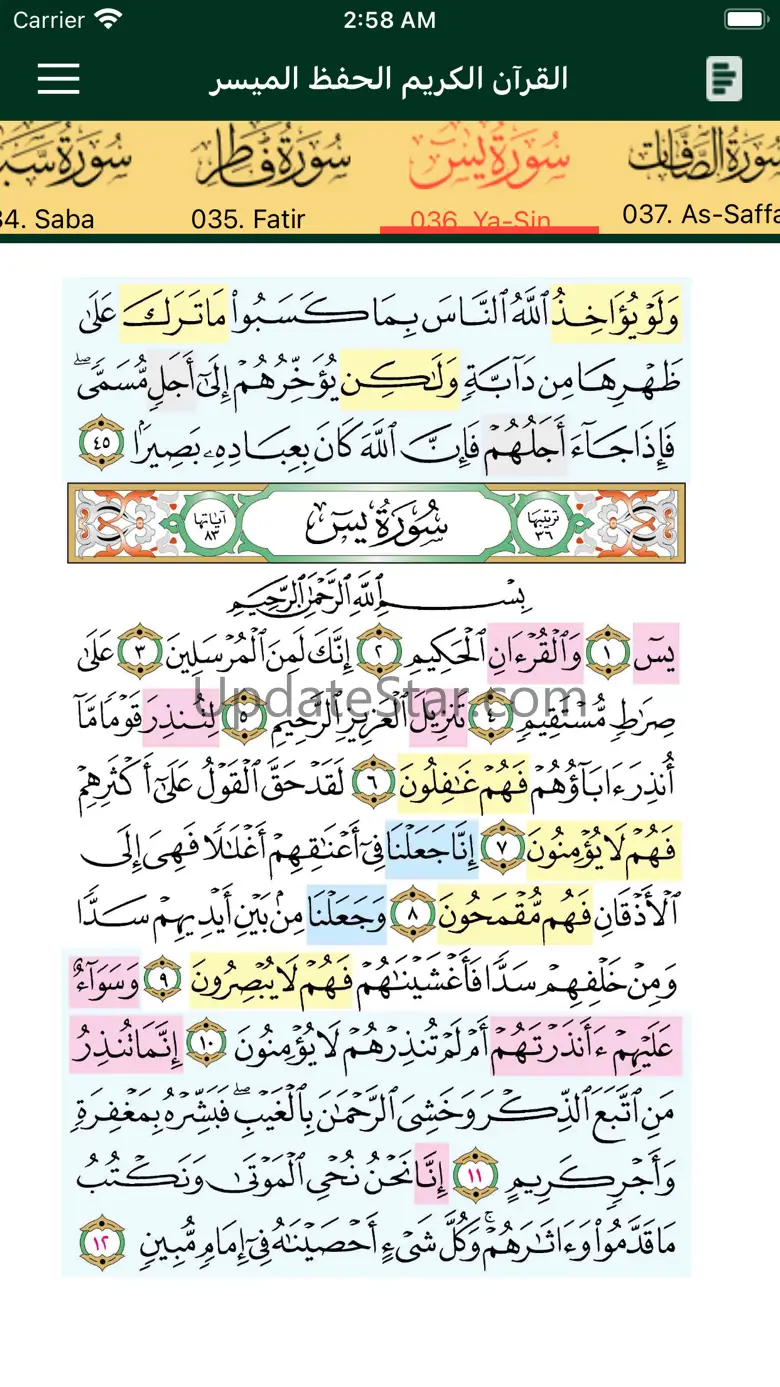 Carrier 2:58 AM
القرآن الكريم الحفظ الميسر
سورة فاطر سورة يس سورة الصافات
34. Saba 035. Fatir 036. Ya-Sin 037. As-Saffa
وَلَوْ يُؤَاخِذُ ٱللَّهُ ٱلنَّاسَ بِمَا كَسَبُوا۟ مَا تَرَكَ عَلَىٰ
ظَهْرِهَا مِن دَآبَّةٍ وَلَـٰكِن يُؤَخِّرُهُمْ إِلَىٰٓ أَجَلٍ مُّسَمًّى ۖ
فَإِذَا جَآءَ أَجَلُهُمْ فَإِنَّ ٱللَّهَ كَانَ بِعِبَادِهِۦ بَصِيرًۢا ٤٥
ترتيبها ٣٦ سُورَةُ يسٓ آياتها ٨٣
بِسْمِ ٱللَّهِ ٱلرَّحْمَـٰنِ ٱلرَّحِيمِ
يسٓ ١ وَٱلْقُرْءَانِ ٱلْحَكِيمِ ٢ إِنَّكَ لَمِنَ ٱلْمُرْسَلِينَ ٣ عَلَىٰ
صِرَٰطٍ مُّسْتَقِيمٍ ٤ تَنزِيلَ ٱلْعَزِيزِ ٱلرَّحِيمِ ٥ لِتُنذِرَ قَوْمًا مَّآ
UpdateStar.com
أُنذِرَ ءَابَآؤُهُمْ فَهُمْ غَـٰفِلُونَ ٦ لَقَدْ حَقَّ ٱلْقَوْلُ عَلَىٰٓ أَكْثَرِهِمْ
فَهُمْ لَا يُؤْمِنُونَ ٧ إِنَّا جَعَلْنَا فِىٓ أَعْنَـٰقِهِمْ أَغْلَـٰلًا فَهِىَ إِلَى
ٱلْأَذْقَانِ فَهُم مُّقْمَحُونَ ٨ وَجَعَلْنَا مِنۢ بَيْنِ أَيْدِيهِمْ سَدًّا
وَمِنْ خَلْفِهِمْ سَدًّا فَأَغْشَيْنَـٰهُمْ فَهُمْ لَا يُبْصِرُونَ ٩ وَسَوَآءٌ
عَلَيْهِمْ ءَأَنذَرْتَهُمْ أَمْ لَمْ تُنذِرْهُمْ لَا يُؤْمِنُونَ ١٠ إِنَّمَا تُنذِرُ
مَنِ ٱتَّبَعَ ٱلذِّكْرَ وَخَشِىَ ٱلرَّحْمَـٰنَ بِٱلْغَيْبِ ۖ فَبَشِّرْهُ بِمَغْفِرَةٍ
وَأَجْرٍ كَرِيمٍ ١١ إِنَّا نَحْنُ نُحْىِ ٱلْمَوْتَىٰ وَنَكْتُبُ
مَا قَدَّمُوا۟ وَءَاثَـٰرَهُمْ ۚ وَكُلَّ شَىْءٍ أَحْصَيْنَـٰهُ فِىٓ إِمَامٍ مُّبِينٍ ١٢